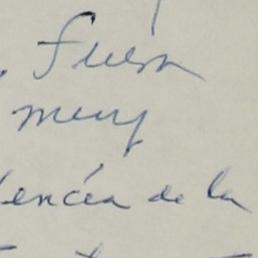 fuera
muy
dencia de la